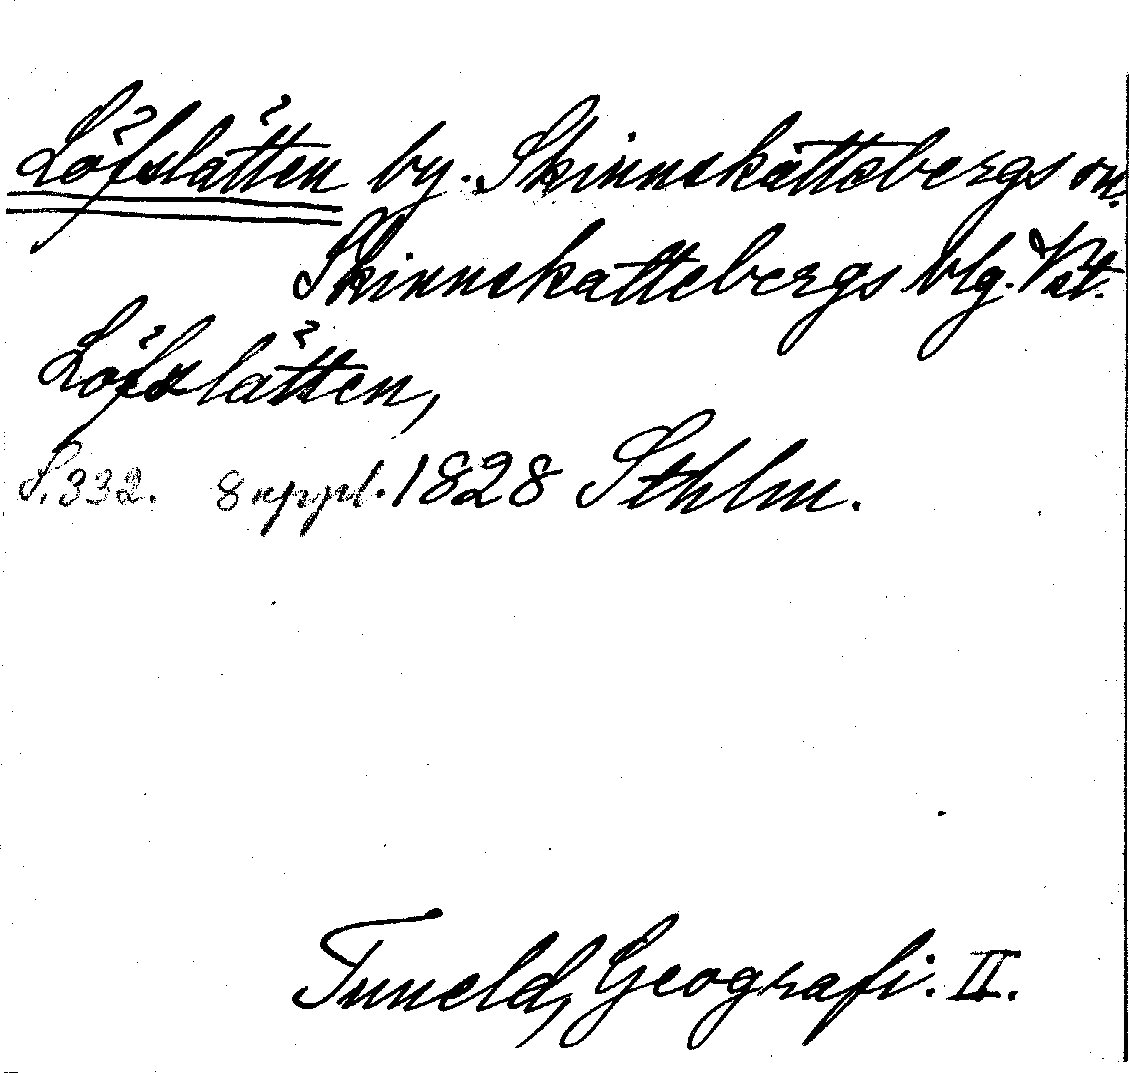 Löfslätten by. Skinnskattebergs sn.
Skinnskattebergs blg. Vst.
Löfslätten,
S. 332. 8 uppl. 1828 Sthlm.
Tuneld, Geografi. II.